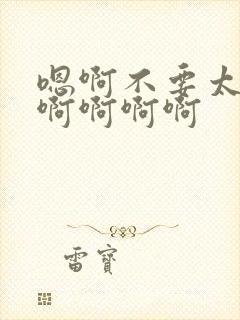 嗯啊不要太
啊啊啊啊
雷寶